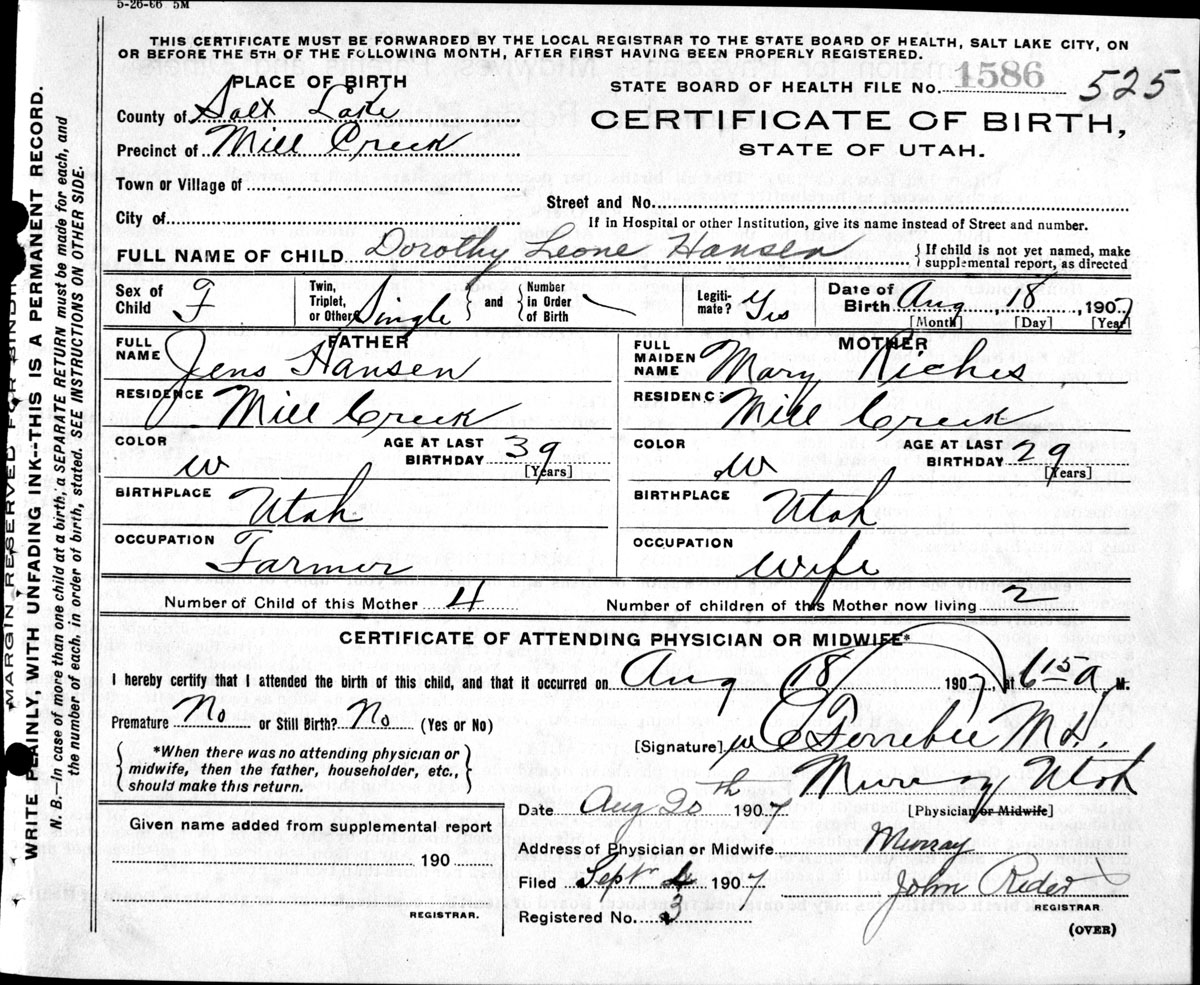 5-26-06 5M
THIS CERTIFICATE MUST BE FORWARDED BY THE LOCAL REGISTRAR TO THE STATE BOARD OF HEALTH, SALT LAKE CITY, ON
OR BEFORE THE 5TH OF THE FOLLOWING MONTH, AFTER FIRST HAVING BEEN PROPERLY REGISTERED.
PLACE OF BIRTH
STATE BOARD OF HEALTH FILE No. 1586 525
County of Salt Lake
CERTIFICATE OF BIRTH,
Precinct of Mill Creek
STATE OF UTAH.
Town or Village of
Street and No.
City of
If in Hospital or other Institution, give its name instead of Street and number.
FULL NAME OF CHILD Dorothy Leone Hansen { If child is not yet named, make
supplemental report, as directed
Sex of Child F Twin, Triplet, or Other Single } and { Number in Order of Birth Legiti-mate? Yes Date of Birth Aug 18, 1907
[Month] [Day] [Year]
FATHER
FULL NAME Jens Hansen
RESIDENCE Mill Creek
COLOR W AGE AT LAST BIRTHDAY 39 [Years]
BIRTHPLACE Utah
OCCUPATION Farmer
MOTHER
FULL MAIDEN NAME Mary Riches
RESIDENCE Mill Creek
COLOR W AGE AT LAST BIRTHDAY 29 [Years]
BIRTHPLACE Utah
OCCUPATION Wife
Number of Child of this Mother 4 Number of children of this Mother now living 2
CERTIFICATE OF ATTENDING PHYSICIAN OR MIDWIFE*
I hereby certify that I attended the birth of this child, and that it occurred on Aug 18 1907, at 6 15 a M.
Premature No or Still Birth? No (Yes or No)
[Signature] W C Ferrebee M.D.
*When there was no attending physician or
midwife, then the father, householder, etc.,
should make this return.
Murray Utah
Date Aug 20th 1907 [Physician or Midwife]
Given name added from supplemental report
Address of Physician or Midwife Murray
190
Filed Sept 4 1907 John Rider
REGISTRAR.
REGISTRAR
Registered No. 3
(OVER)
MARGIN RESERVED FOR BINDIN
WRITE PLAINLY, WITH UNFADING INK--THIS IS A PERMANENT RECORD.
N. B.—In case of more than one child at a birth, a SEPARATE RETURN must be made for each, and
the number of each, in order of birth, stated. SEE INSTRUCTIONS ON OTHER SIDE.